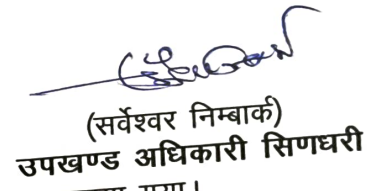 (सर्वेश्वर निम्बार्क)
उपखण्ड अधिकारी सिणधरी
गया।